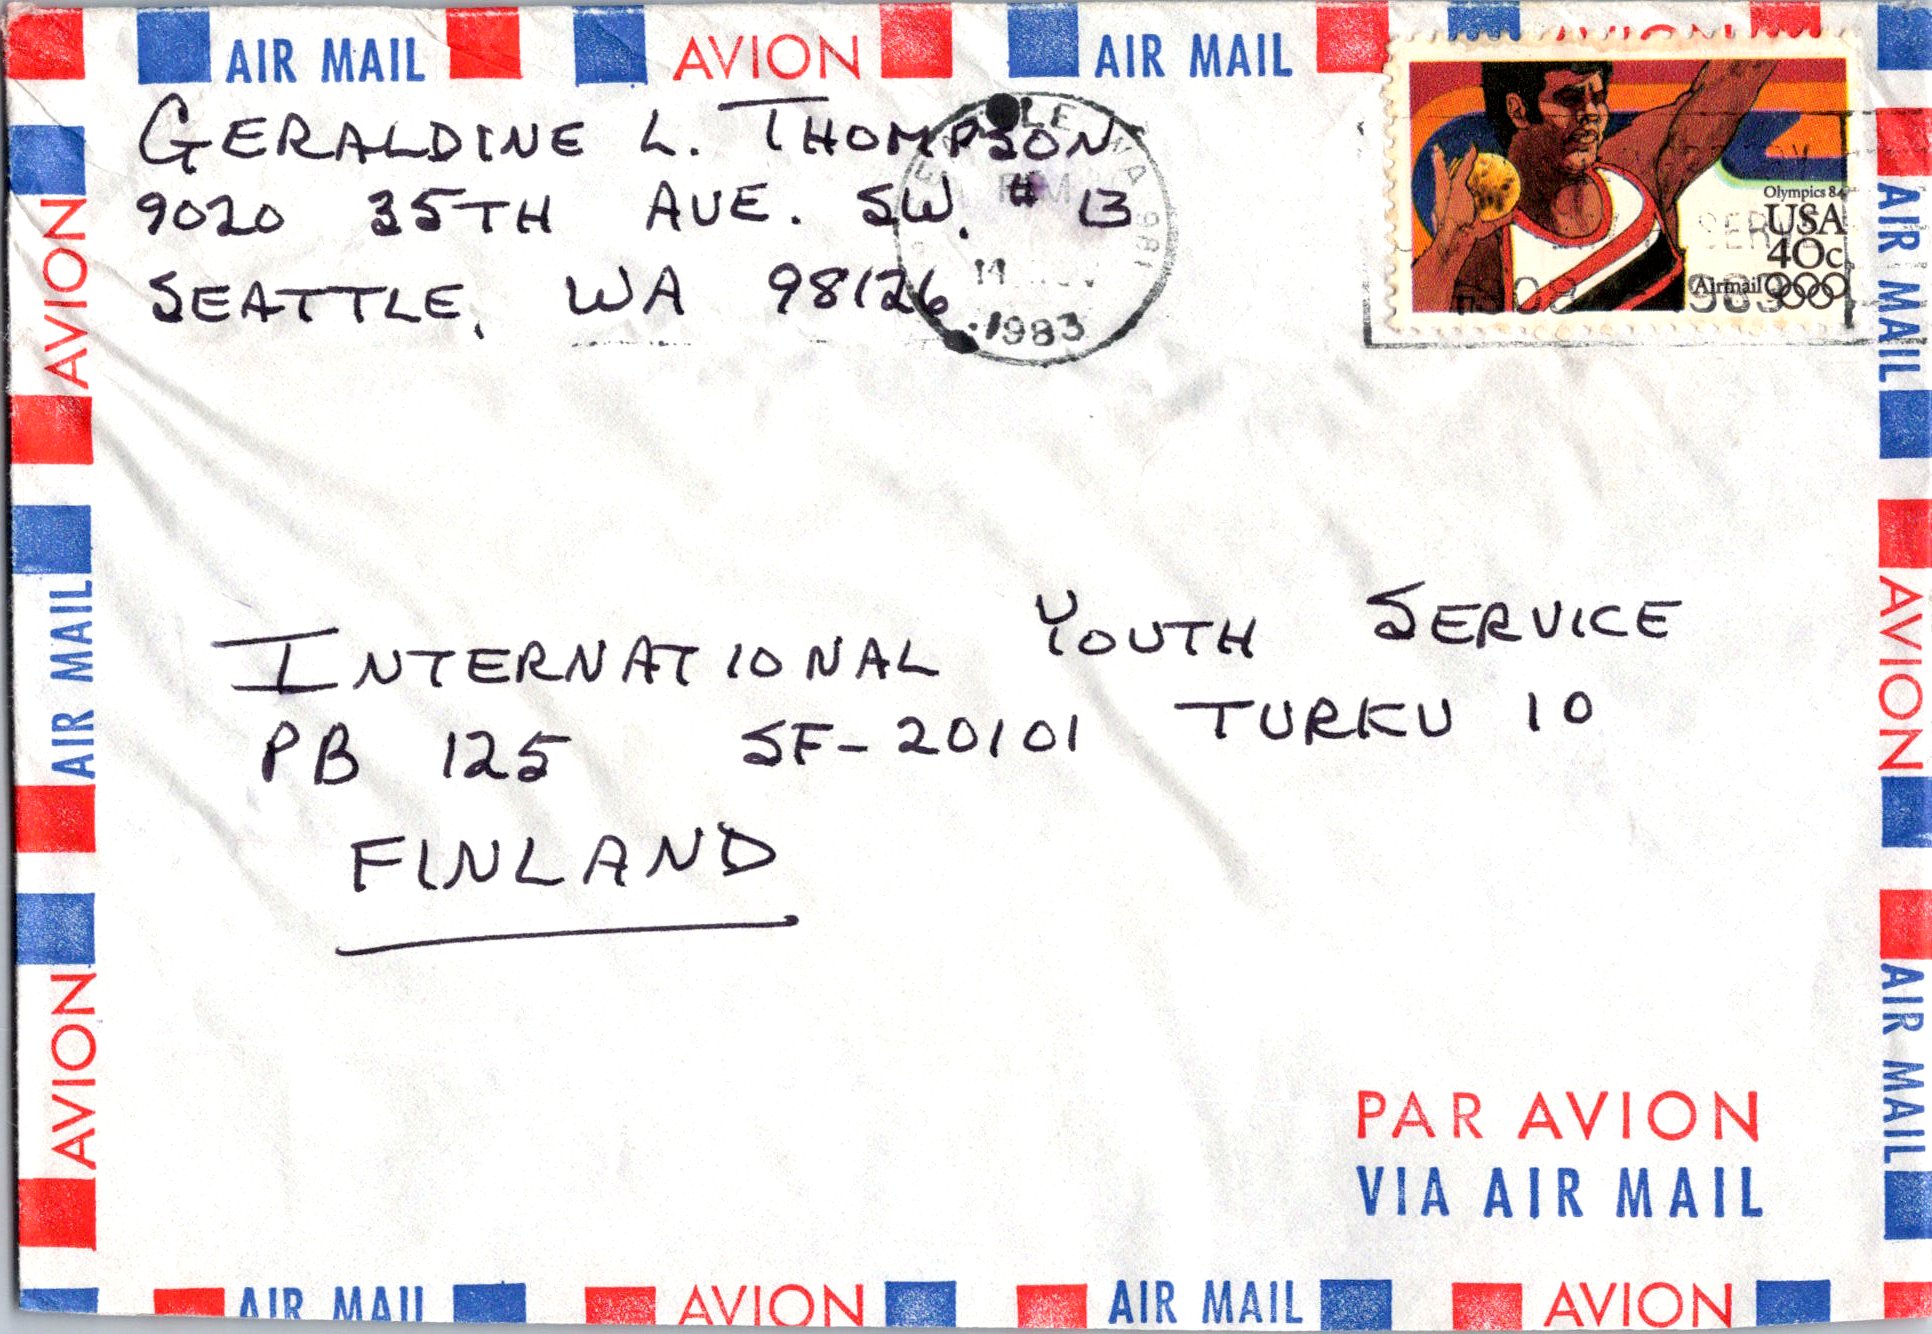 AIR MAIL AVION AIR MAIL AVION
GERALDINE L. THOMPSON
9020 35TH AVE. SW. # 13
SEATTLE, WA 98126
WA 981
PM
14
1983
Olympics 84
USA
40c
Airmail
1983
INTERNATIONAL YOUTH SERVICE
PB 125 SF-20101 TURKU 10
FINLAND
PAR AVION
VIA AIR MAIL
AVION
AIR MAIL
AVION
AIR MAIL
AVION
AIR MAIL
AIR MAIL AVION AIR MAIL AVION